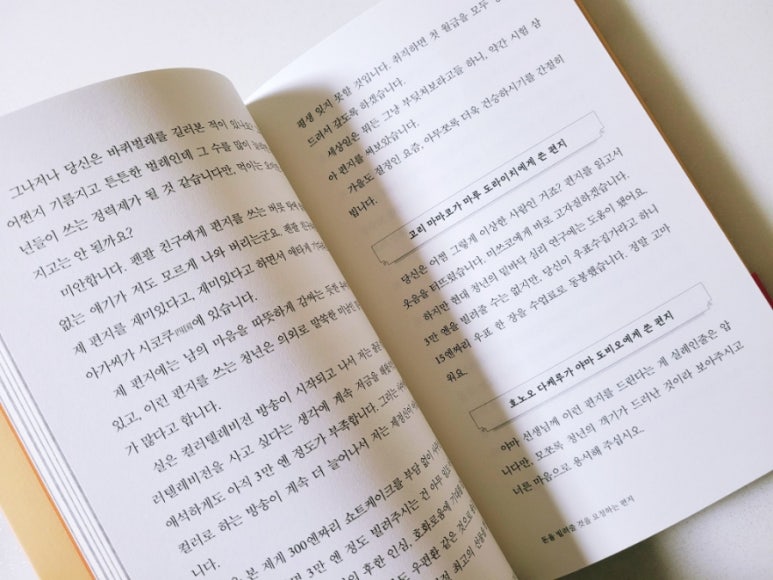 그나저나 당신은 바퀴벌레를 길러본 적이
어쩐지 기름지고 튼튼한 벌레인데 그 수를 많이
년들이 쓰는 정력제가 될 것 같습니다만, 먹이는
지고는 안 될까요?
미안합니다. 펜팔 친구에게 편지를 쓰는 버릇
없는 얘기가 저도 모르게 나와 버리는군요. 펜팔
제 편지를 재미있다고, 재미있다고 하면서 애타게
아가씨가 시코쿠에 있습니다.
제 편지에는 남의 마음을 따뜻하게 감싸는
있고, 이런 편지를 쓰는 청년은 의외로 말쑥한
가 많다고 합니다.
실은 컬러텔레비전 방송이 시작되고 나서 저는
러텔레비전을 사고 싶다는 생각에 계속 저금을
애석하게도 아직 3만 엔 정도가 부족합니다. 그러는
컬러로 하는 방송이 계속 더 늘어나서 저는
니다.
본 제게 300엔짜리 쇼트케이크를 부담 없이
3만 엔 정도 빌려주시는 건 아무
후한 인심, 호화로움에
우편환 같은 것으로
최고의
평생 잊지 못할 것입니다. 취직하면 첫 월급을 모두
드려서 갚도록 하겠습니다.
세상일은 뭐든 그냥 부딪쳐보라고들 하니, 약간 시험 삼
아 편지를 써보았습니다.
가을도 절정인 요즘, 아무쪼록 더욱 건승하시기를 간절히
빕니다.
고리 마마코가 마루 도라이치에게 쓴 편지
당신은 어쩜 그렇게 이상한 사람인 거죠? 편지를 읽고서
웃음을 터뜨렸습니다. 미쓰코에게 바로 고자질하겠습니다.
하지만 현대 청년의 밑바닥 심리 연구에는 도움이 됐어요.
3만 엔을 빌려줄 수는 없지만, 당신이 우표수집가라고 하니
15엔짜리 우표 한 장을 수업료로 동봉했습니다. 정말 고마
워요.
호노오 다케루가 야마 도비오에게 쓴 편지
야마 선생님께 이런 편지를 드린다는 게 실례인줄은 압
니다만, 모쪼록 청년의 객기가 드러난 것이라 보아주시고
너른 마음으로 용서해 주십시오.
돈을 빌려줄 것을 요청하는 편지